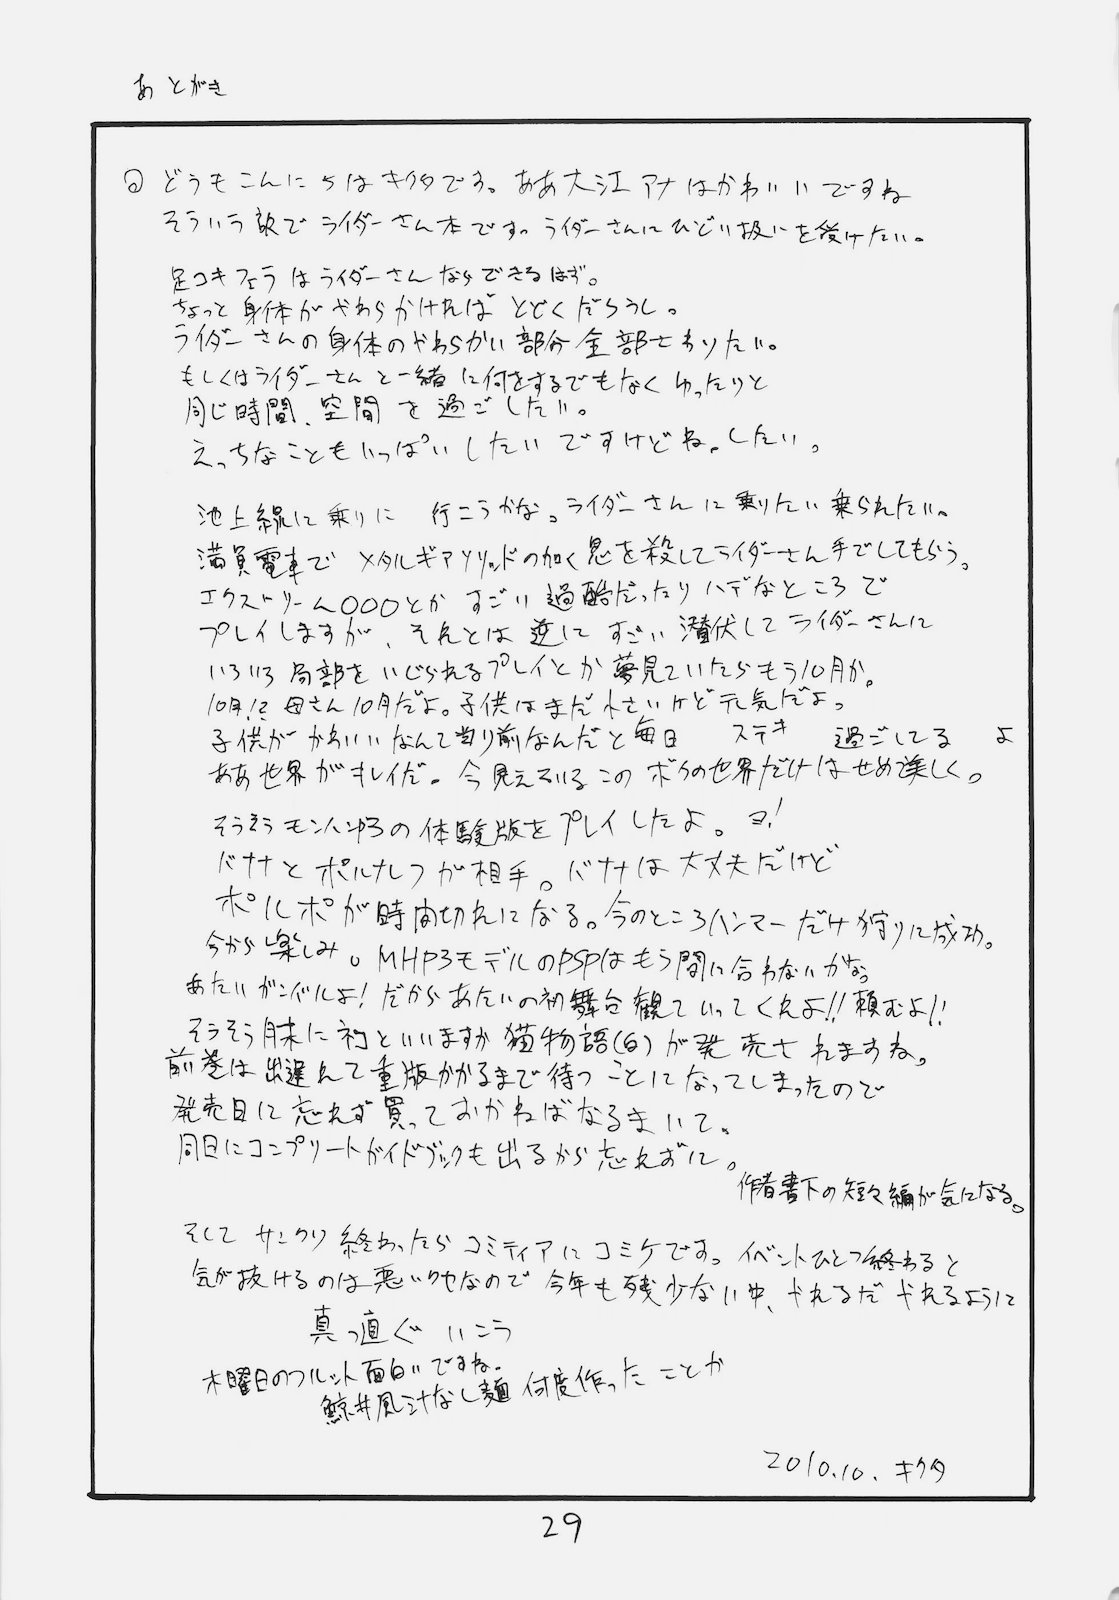 あとがき
どうもこんにちはキクタです。ああ大江アナはかわいいですね
そういう訳でライダーさん本です。ライダーさんにひどい扱いを受けたい。
足コキフェラはライダーさんならできるはず。
ちょっと身体がやわらかければとどくだろうし。
ライダーさんの身体のやわらかい部分全部さわりたい。
もしくはライダーさんと一緒に何をするでもなくゆったりと
同じ時間、空間を過ごしたい。
えっちなこともいっぱいしたいですけどね。したい。
池上線に乗りに 行こうかな。ライダーさんに乗りたい乗られたい。
満員電車でメタルギアソリッドの如く息を殺してライダーさん手でしてもらう。
エクストリーム〇〇〇とかすごい過酷だったりハデなところで
プレイしますが、それとは逆にすごい潜伏してライダーさんに
いろいろ局部をいじられるプレイとか夢見ていたらもう10月か。
10月!? 母さん10月だよ。子供はまだ小さいけど元気だよ。
子供がかわいいなんて当り前なんだと毎日 ステキ 過ごしてる よ
ああ世界がキレイだ。今見えているこのボクの世界だけはせめ美しく。
そうそうモンハンの体験版をプレイしたよ。ヨ!
バナナとポルナレフが相手。バナナは大丈夫だけど
ポルポが時間切れになる。今のところハンマーだけ狩りに成功。
今から楽しみ。MHP3モデルのPSPはもう間に合わないかな。
あたいガンバルよ!だからあたいの初舞台観ていってくれよ!!頼むよ!!
そうそう月末に初といいますか猫物語(白)が発売されますね。
前巻は出遅れて重版かかるまで待つことになってしまったので
発売日に忘れず買っておかねばなるまいて。
同日にコンプリートガイドブックも出るから忘れずに。
作者書下の短々編が気になる。
そしてサンクリ終わったらコミティアにコミケです。イベントひとつ終わると
気が抜けるのは悪いクセなので今年も残少ない中、やれるだやれるように
真っ直ぐいこう
木曜日のフルット面白いですね。
鯨井風汁なし麺何度作ったことか
2010.10. キクタ
29